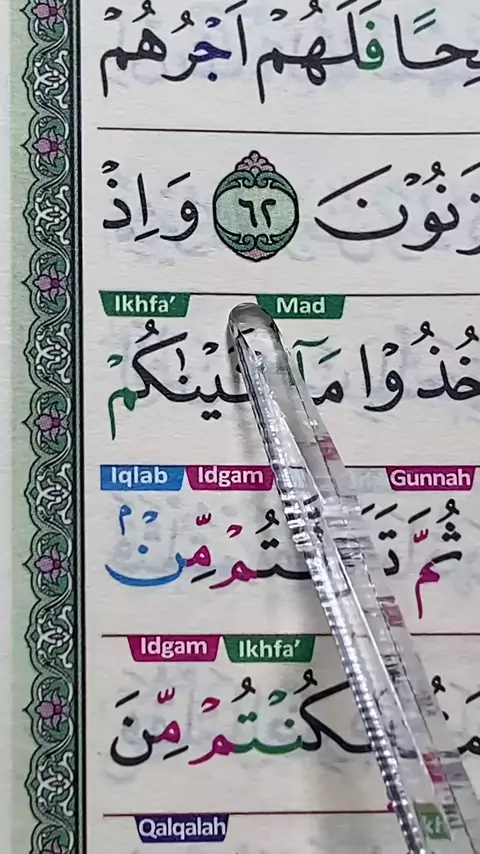 فَلَهُمْ اَجْرُهُمْ
٦٢ وَاِذْ
Ikhfa' Mad
خُذُوْا مَآ
Iqlab Idgam Gunnah
ثُمَّ مِّنْۢ
Idgam Ikhfa'
لَكُنْتُمْ مِّنَ
Qalqalah